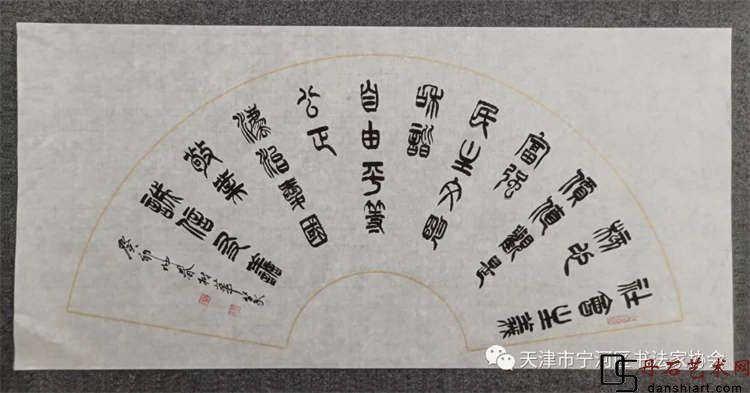 社會主義
核心
價值觀是
富强
民主文明
和諧
自由平等
公正
灋治愛國
敬業
誠信友善
癸卯
天津市宁河区书法家协会
DS
丹石艺术网
danshiart.com